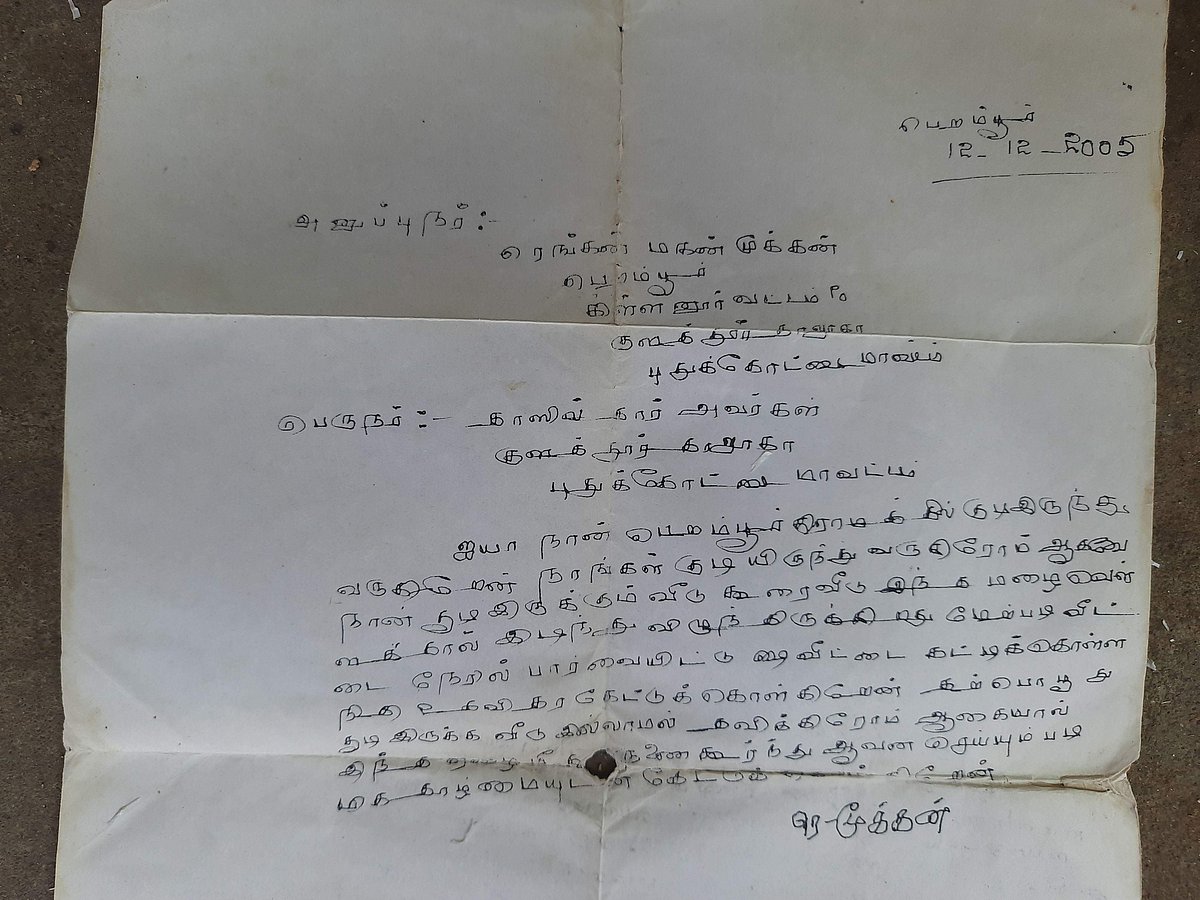 பெறம்பூர்
12 - 12 - 2005
அனுப்புநர் :-
ரெங்கன் மகன் மூக்கன்
பெறம்பூர்
கிள்ளனூர் வட்டம் Po
குளத்தூர் தாலூகா
புதுக்கோட்டை மாவட்டம்
பெருநர் :- தாஸில் தார் அவர்கள்
குளத்தூர் தாலூகா
புதுக்கோட்டை மாவட்டம்
ஐயா நான் பெறம்பூர் கிராமத்தில் குடிஇருந்து
வருகிறேன் நாங்கள் குடியிருந்து வருகிரோம் ஆகவே
நான் குடிஇருக்கும் வீடு கூரைவீடு இந்த மழைவெள்
ளத்தால் இடிந்து விழுந்திருக்கிறது மேற்படி வீட்
டை நேரில் பார்வையிட்டு ஷ வீட்டை கட்டிக்கொள்ள
நிதி உதவி தரகேட்டுக்கொள்கிறேன் தற்பொழுது
குடி இருக்க வீடு இல்லாமல் தவிக்கிரோம் ஆகையால்
இந்த கூர்ந்து ஆவன செய்யும் படி
மிக தாழ்மையுடன் கேட்டுக்
ரெ-மூக்கன்